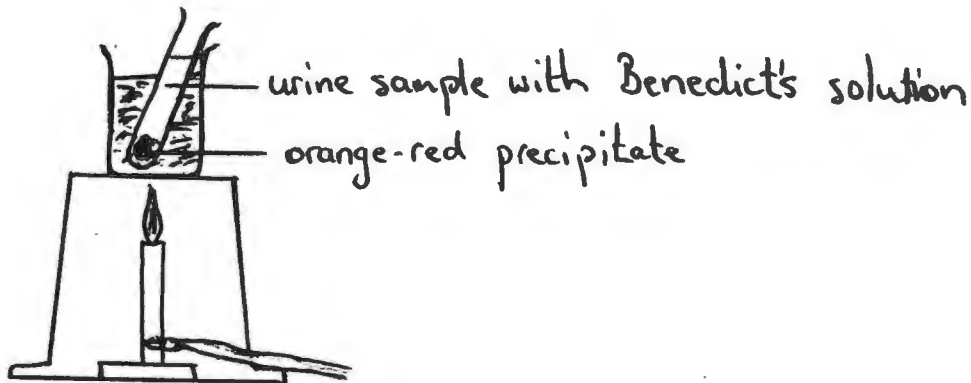 urine sample with Benedict's solution
orange-red precipitate